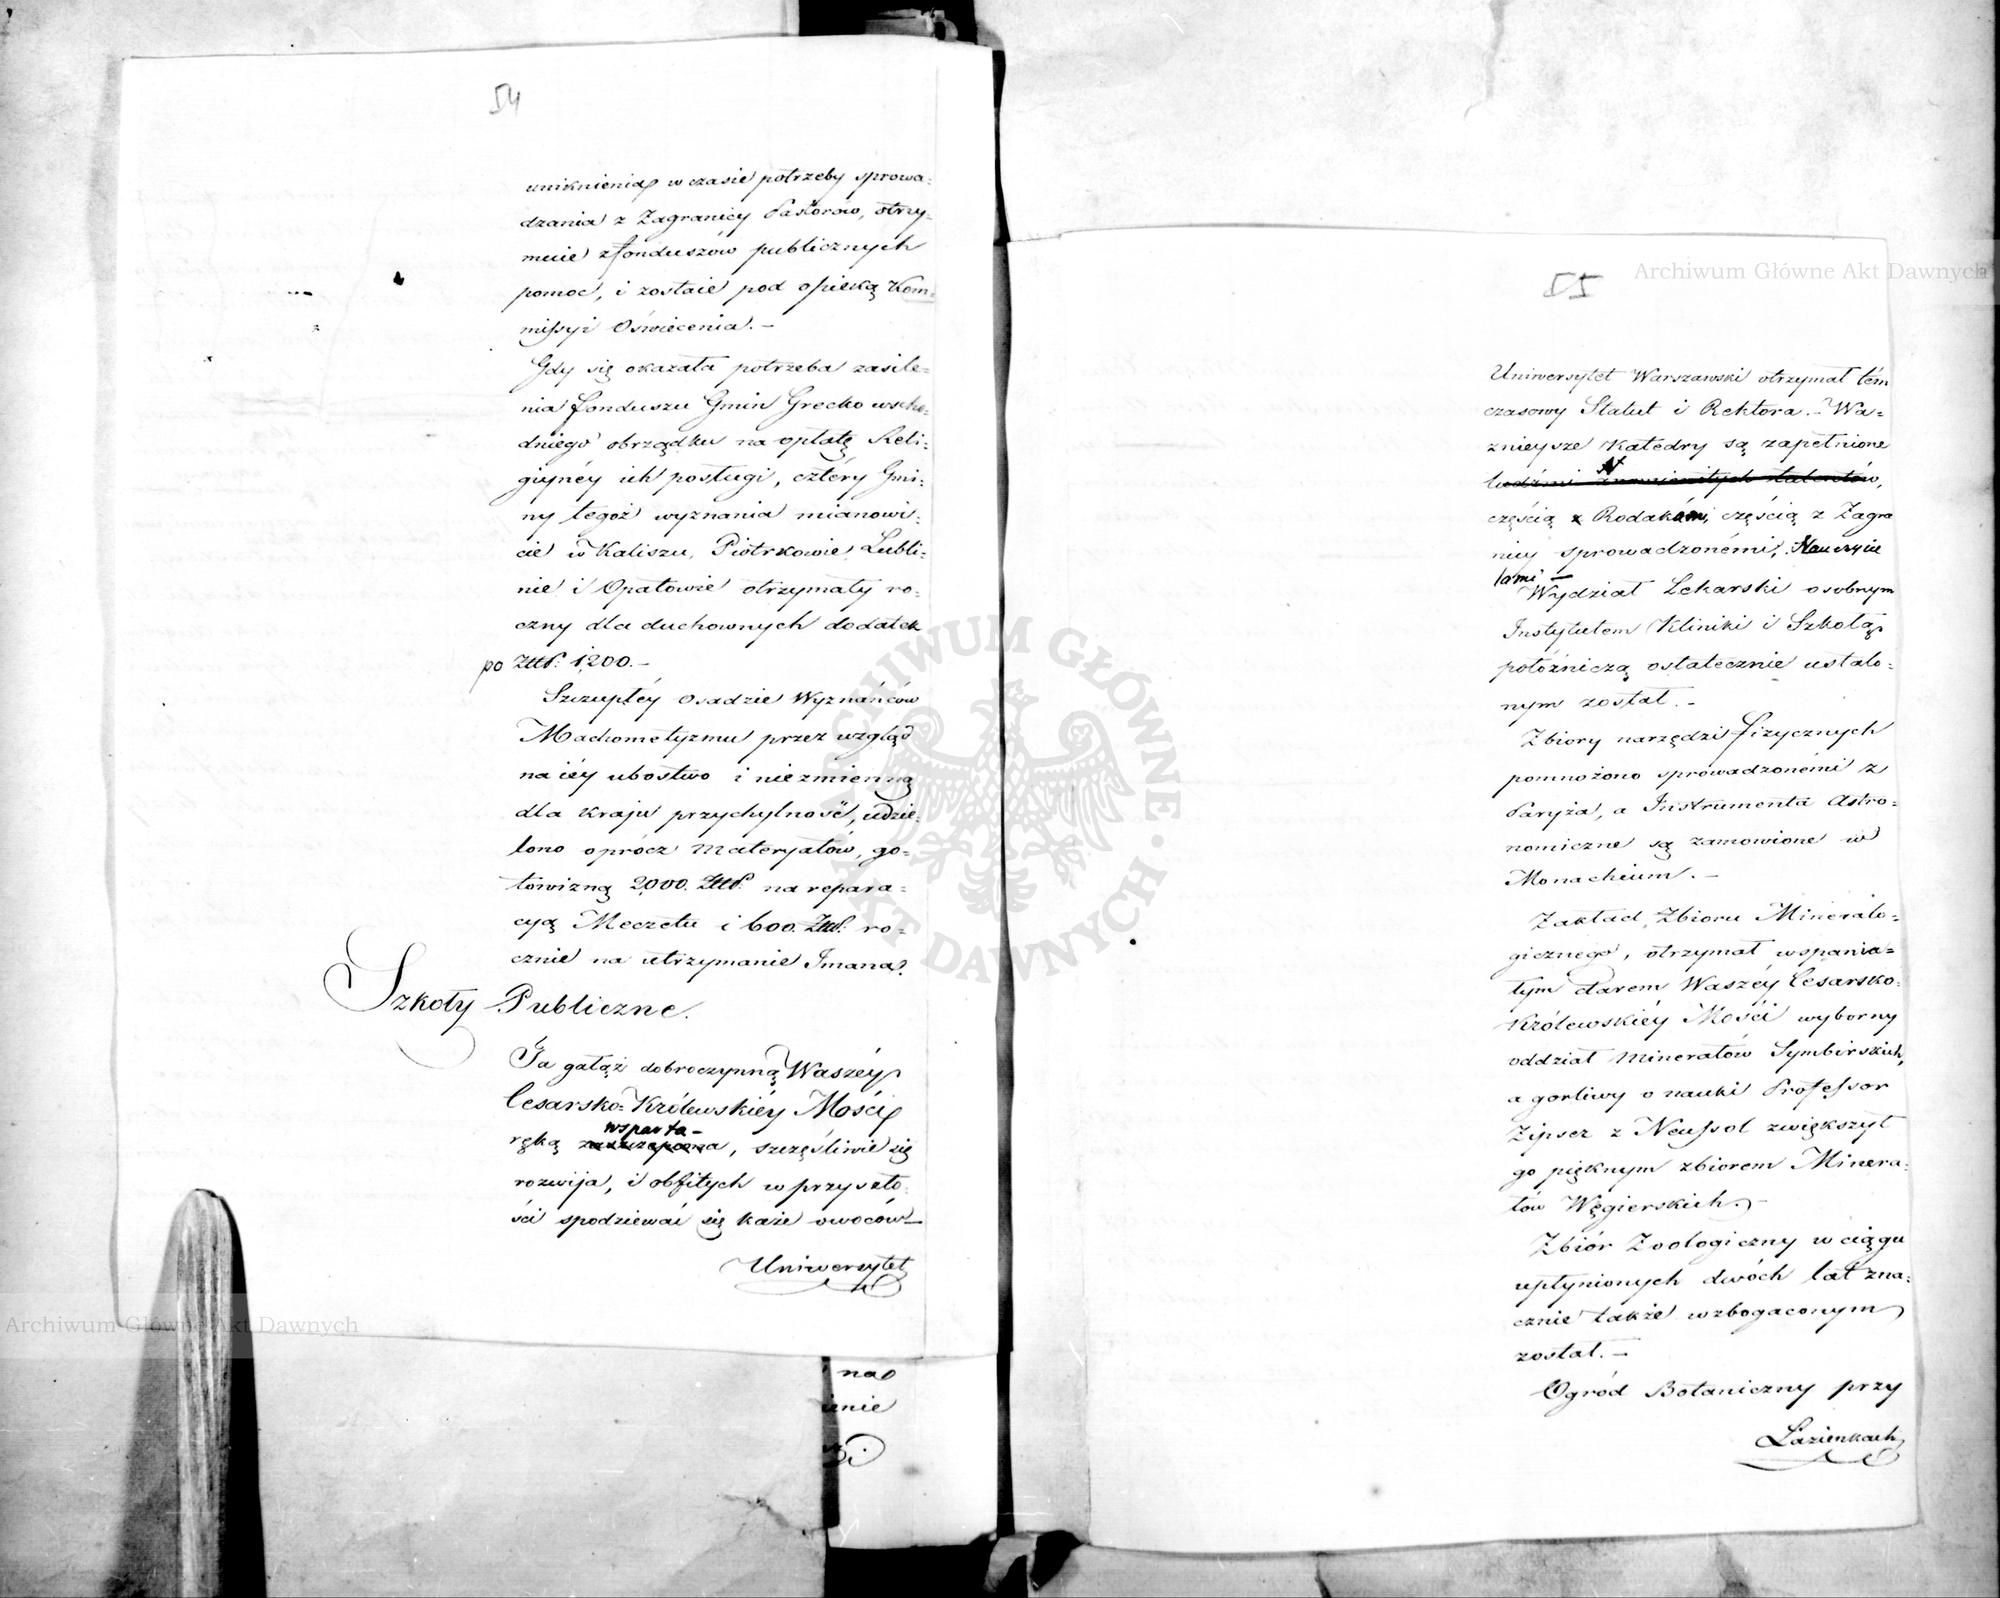 54
uniknienia w czasie potrzeby sprowa=
dzania z Zagranicy Pastorów, otrzy=
muie z funduszów publicznych
pomoc, i zostaie pod opieką Kom=
missyi Oświecenia. –
Gdy się okazała potrzeba zasile=
nia funduszu Gmin Grecko wscho=
dniego obrządku na opłatę Reli=
giynéy ich posługi, cztéry Gmi=
ny tegoż wyznania mianowi=
cie w Kaliszu, Piotrkowie, Lubli=
nie i Opatowie otrzymały ro=
czny dla duchownych dodatek
po Złł. 1,200. –
Szczupłéy Osadzie Wyznańców
Machometyzmu przez wzgląd
na iéy ubostwo i niezmienną
dla kraju przychylność, udzie=
lono oprócz materyałów, go=
towizną 2,000. Złł. na repara=
cyą Meczetu i 600. Złł. ro=
cznie na utrzymanie Imana.
Szkoły Publiczne.
Ta gałąź dobroczynną Waszéy
Cesarsko=Królewskiéy Mości
wsparta –
ręką zaszczepiona, szczęśliwie się
rozwija, i obfitych w przyszło=
ści spodziewać się każe owoców –
Uniwersytet
na
inie
55
Archiwum Główne Akt Dawnych
Uniwersytet Warszawski otrzymał tém
czasowy Statut i Rektora. – Wa=
znieysze Katedry są zapełnione
ludźmi znamienitych talentów,
częścią z Rodakami, częścią z Zagra
nicy sprowadzonémi, Nauczycie
lami –
Wydział Lekarski osobnym
Instytutem Kliniki i Szkołą
położniczą ostatecznie ustalo=
nym został. –
Zbiory narzędzi fizycznych
pomnożono sprowadzonémi z
Paryża, a Instrumenta Astro=
nomiczne są zamowione w
Monachium. –
Zakład Zbioru Mineralo=
gicznego, otrzymał wspania=
łym darem Waszéy Cesarsko=
Królewskiéy Mości wyborny
oddział Minerałów Symbirskich,
a gorliwy o nauki Professor
Zipser z Neusol zwiększył
go pięknym zbiorem Minera=
łów Węgierskich. –
Zbiór Zoologiczny w ciągu
upłynionych dwóch lat zna=
cznie także wzbogaconym
został. –
Ogród Botaniczny przy
Łazienkach
ARCHIWUM GŁÓWNE · AKT DAWNYCH ·
Archiwum Główne Akt Dawnych